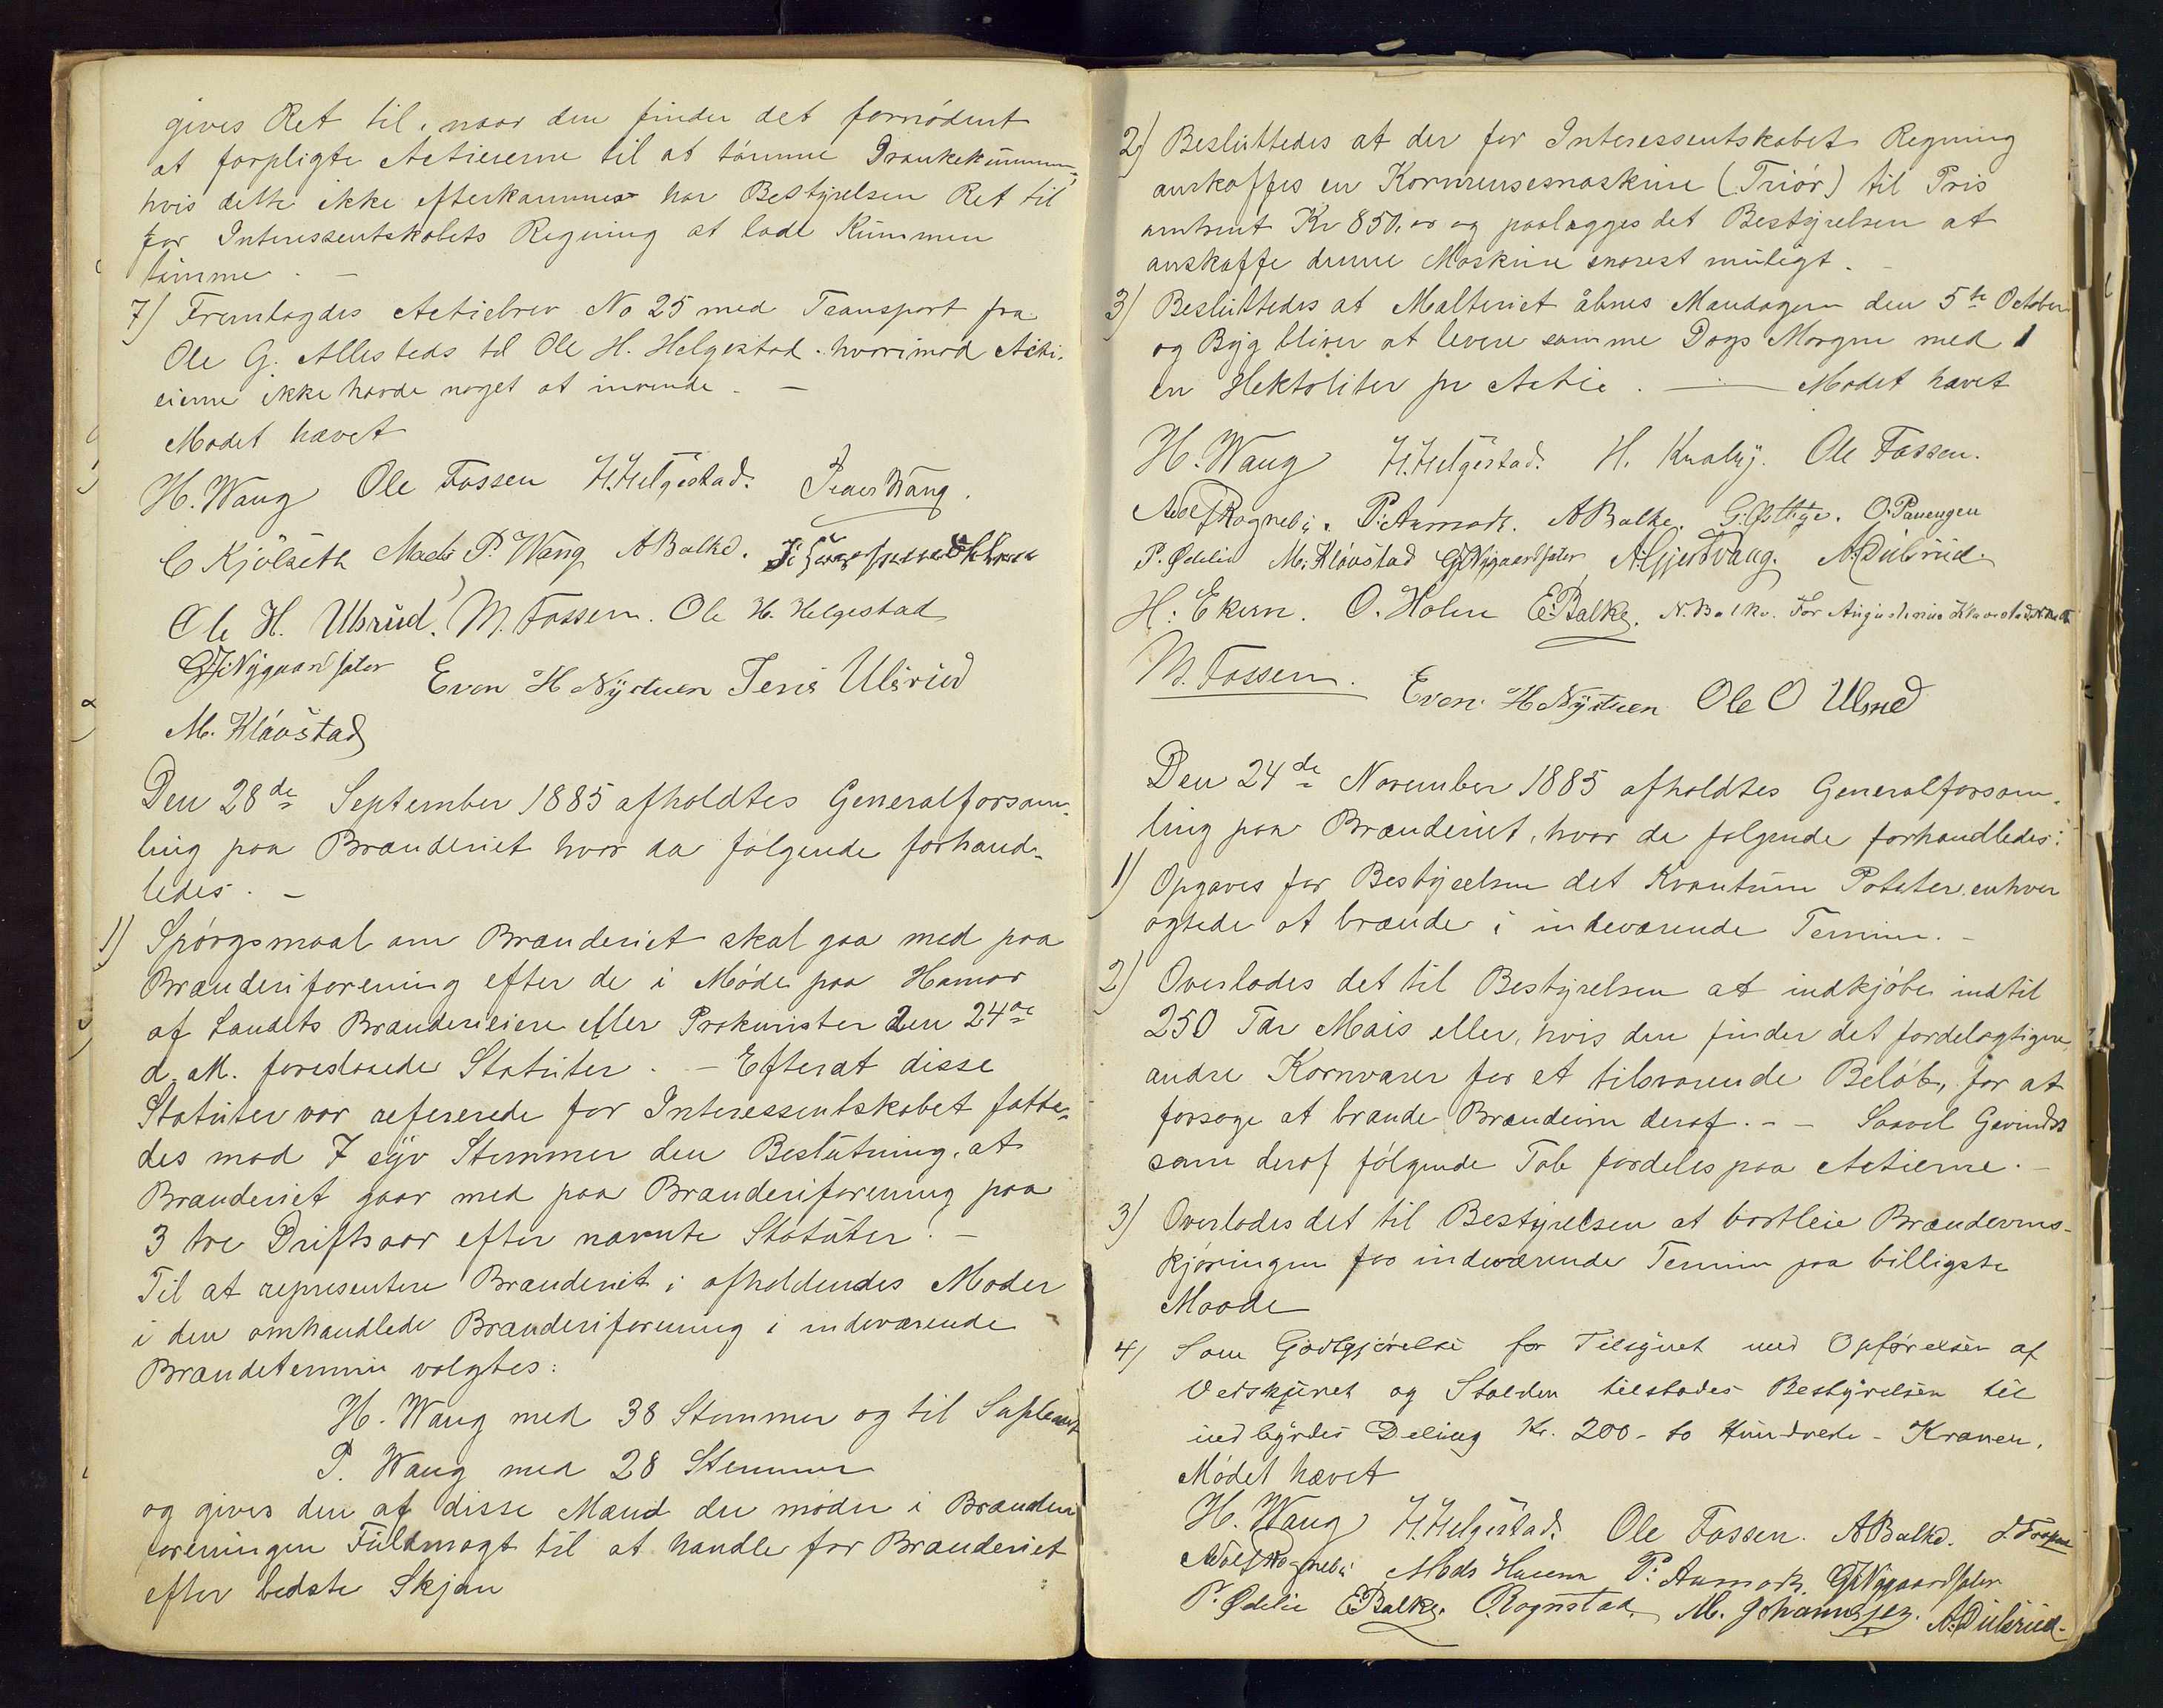 gives Ret til, naar den finder det fornödent
at forpligte Actieierne til at tömme Drankekummen,
hvis dette ikke efterkommes har Bestyrelsen Ret til
for Interessentskabets Regning at lade Kummen
tömme. –
7) Fremlagdes Actiebrev No 25 med Transport fra
Ole G. Allesteds til Ole H. Helgestad. hvorimod Acti-
eierne ikke havde noget at invende. –
Mødet hævet
H. Wang Ole Fossen H. Helgestad. Peder Wang.
C Kjölseth Mads P. Wang A Balke.
Ole H. Ulsrud. M. Fossen. Ole H. Helgestad
G J: Nygaardsæter Even H Nystuen Jens Ulsrud
M. Klövstad
Den 28de September 1885 afholdtes Generalforsam-
ling paa Brænderiet hvor da følgende forhand-
ledes. –
1) Spörgsmaal om Brænderiet skal gaa med paa
Brænderiforening efter de i Möde paa Hamar
af Landets Brænderieiere eller Prokurister den 24de
d. M. foreslaaede Statuter. – Efterat disse
Statuter var refererede for Interessentskabet fatte-
des mod 7 syv Stemmer den Beslutning, at
Brænderiet gaar med paa Brænderiforening paa
3 tre Driftsaar efter nævnte Statuter. –
Til at representere Brænderiet i afholdendes Møder
i den omhandlede Brænderiforening i indeværende
Brændetermin valgtes:
H. Wang med 38 Stemmer og til Supleant
P. Wang med 28 Stemmer
og gives den af disse Mænd der møder i Brænderi
foreningen Fuldmagt til at handle for Brænderiet
efter bedste Skjøn
2) Besluttedes at der for Interessentskabet Regning
anskaffes en Kornrensemaskine (Triör) til Pris
omtrent Kr 850,00 og paalægges det Bestyrelsen at
anskaffe denne Maskine snarest muligt. –
3) Besluttedes at Malteriet åbnes Mandagen den 5te October
og Byg bliver at levere samme Dags Morgen med 1
en Hektoliter pr Actie. — Mødet hævet
H. Wang H. Helgestad. H. Kraby. Ole Fossen.
Adolf Rogneby. P. Aamodt. A Balke. G. Østhye. O. Panengen
P. Ødelie M. Klövstad G J Nygaardsæter A. Gjerdvang. A. Dulsrud.
H. Ekern. O. Holm E. Balke. N. Balke. For Augustinus Klaavstad
M. Fossen. Even H Nystuen Ole O Ulsrud
Den 24de November 1885 afholdtes Generalforsam-
ling paa Brænderiet, hvor de følgende forhandledes:
1) Opgaves for Bestyrelsen det Kvantum Poteter, enhver
agtede at brænde i indeværende Termin. –
2) Overlodes det til Bestyrelsen at indkjöbe indtil
250 Tdr Mais eller, hvis den finder det fordelagtigere,
andre Kornvarer for et tilsvarende Belöb, for at
forsøge at brænde Brændevin deraf. – – Saavel Gevindst
som deraf fölgende Tab fordeles paa Actierne. –
3) Overlodes det til Bestyrelsen at bortleie Brændevins-
kjøringen for indeværende Termin paa billigste
Maade
4) Som Godtgjörelse for Tilsynet med Opførelsen af
Vedskjulet og Stalden tilstodes Bestyrelsen til
indbyrdes Deling Kr. 200 – to Hundrede – Kroner.
Mödet hævet
H. Wang H. Helgestad. Ole Fossen. A Balke.
Adolf Rogneby Mads P. Aamodt. G J Nygaardsæter
P. Ødelie E. Balke. O. Rognstad. M. Johannesen. A. Dulsrud.